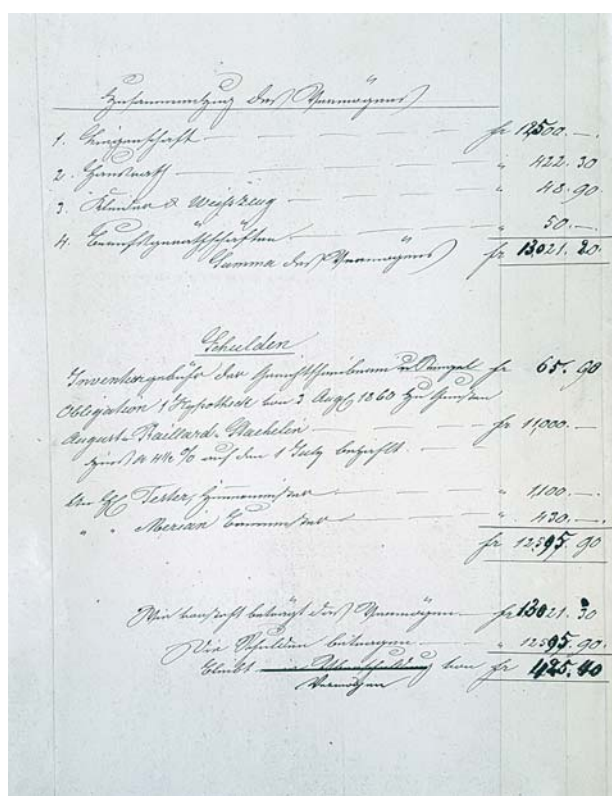 Zusammenzug des Vermögens
1. Liegenschaft — — — — — fr 12500.—.
2. Hausrath — — — — — " 422. 30
3. Kleider & Weißzeug — — — — " 48. 90
4. Berufsgeräthschaften — — — " 50.—.
Summa des Vermögens fr. 13021. 20.
Schulden
Inventurgebühr der Gerichtschreiberei u. Stempel fr 65. 90
Obligation 1 Hypothek von 3 Aug 1860 zu Gunsten
August Raillard-Staehelin — — — fr 11,000.—
Zins à 4½ % auf den 1 July bezahlt. —
Tester, Zimmermeister — — — " 1,100.—.
" " Merian Baumeister — — — " 430.—.
fr 12595. 90
Wie vorsteht beträgt das Vermögen — fr 13021. 30
Die Schulden betragen — — " 12595. 90.
bleibt Vermögen von fr 425. 40